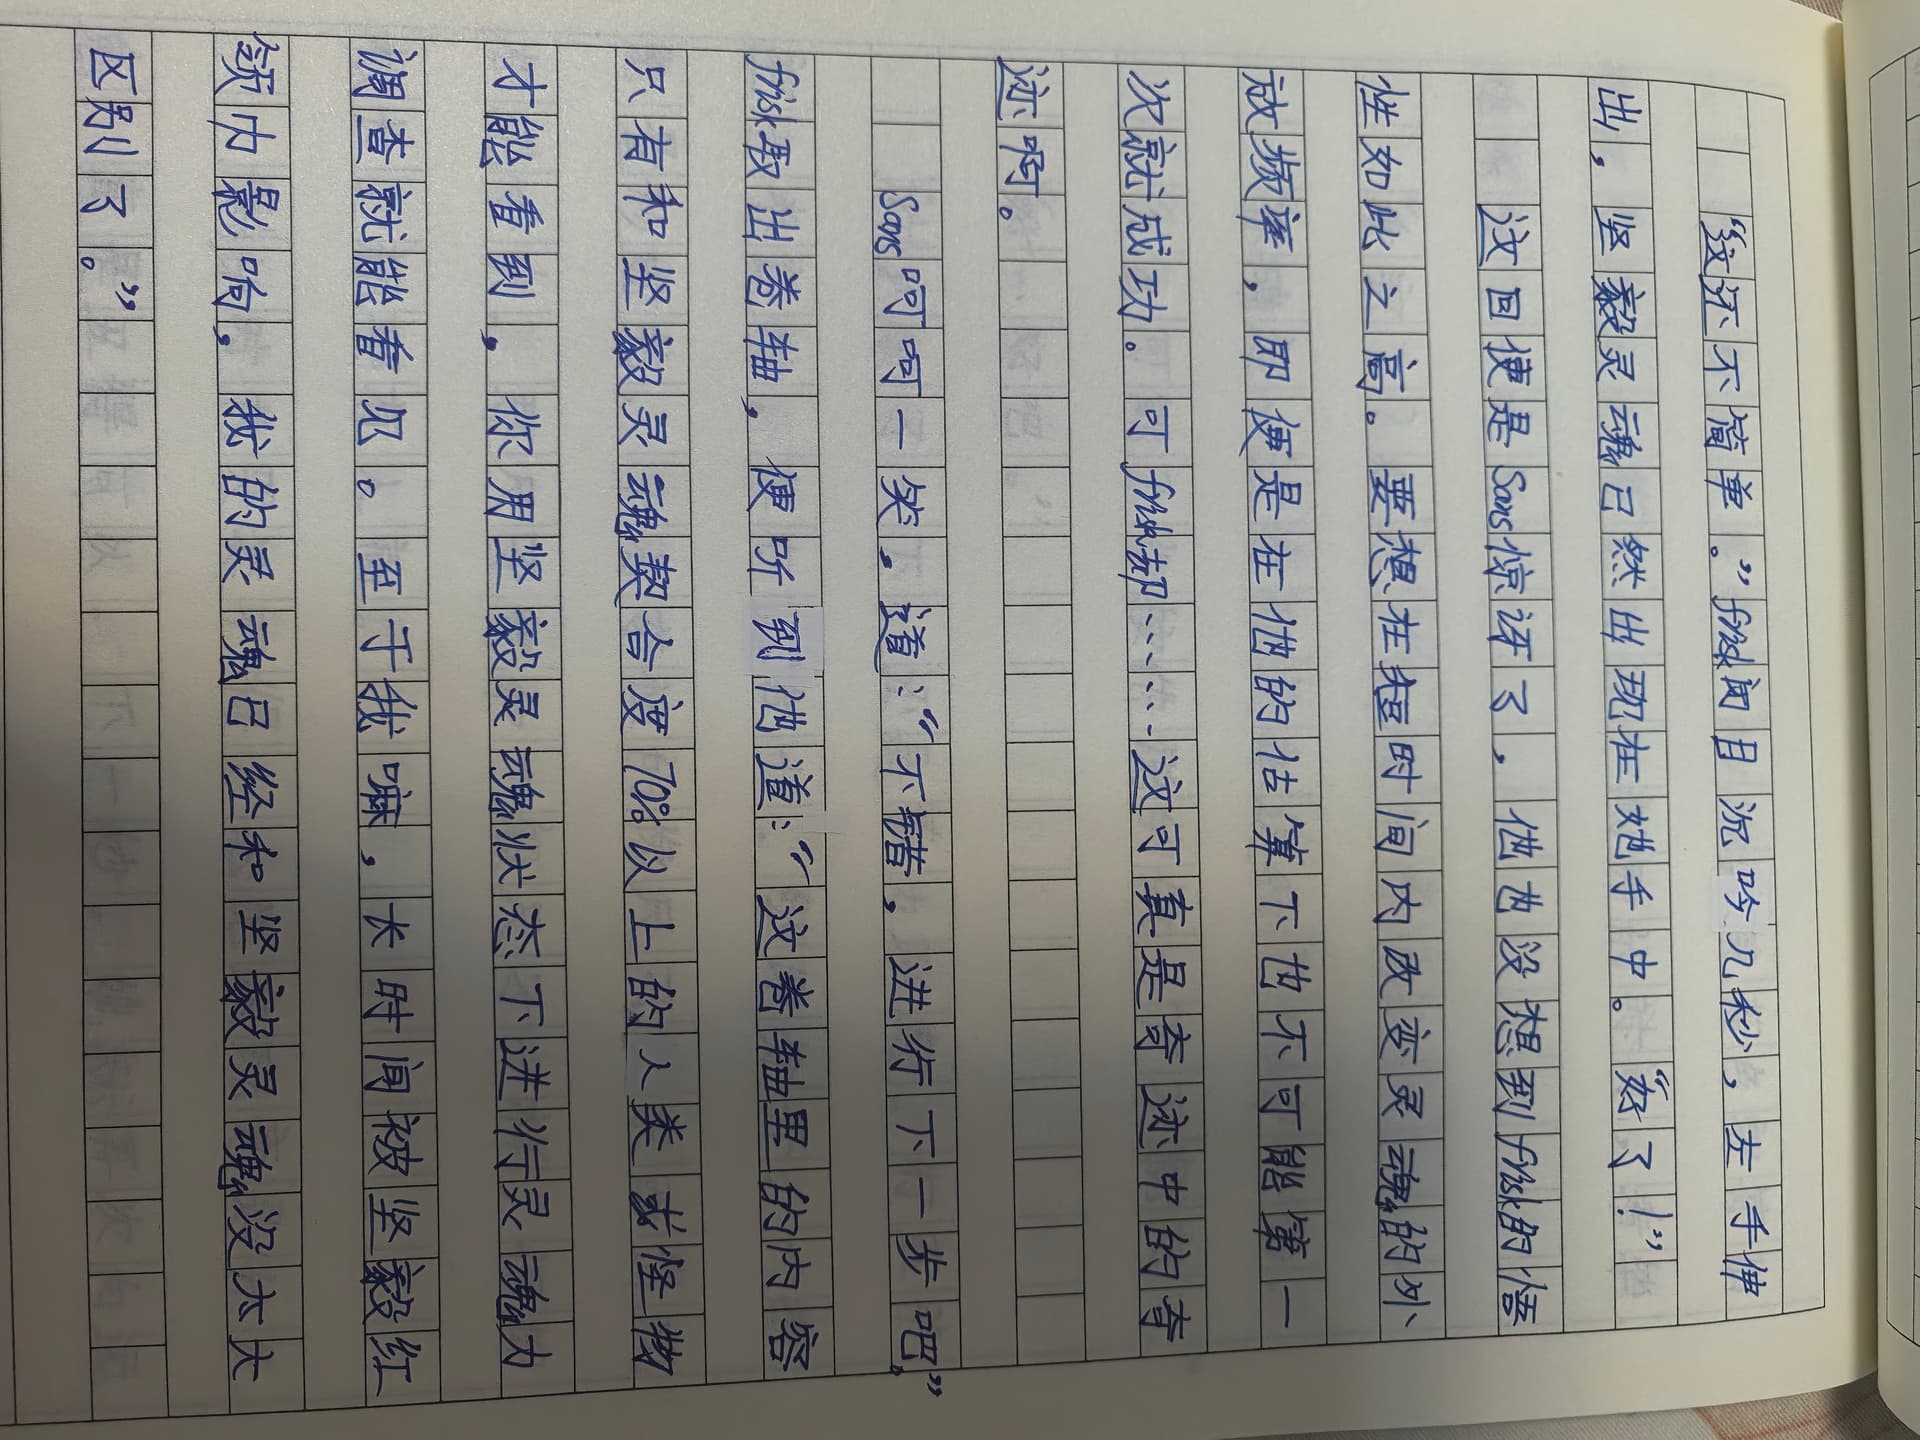 “这还不简单。”frisk闭目沉吟几秒，左手伸
出，坚毅灵魂已然出现在她手中。“好了！”
这回便是Sans惊讶了，他也没想到frisk的悟
性如此之高。要想在短时间内改变灵魂的外
放频率，即便是在他的估算下也不可能第一
次就成功。可frisk却……这可真是奇迹中的奇
迹啊。
Sans呵呵一笑，道：“不错，进行下一步吧。”
frisk取出卷轴，便听到他道：“这卷轴里的内容
只有和坚毅灵魂契合度70%以上的人类或怪物
才能看到，你用坚毅灵魂状态下进行灵魂力
调查就能看见。至于我嘛，长时间被坚毅红
领巾影响，我的灵魂已经和坚毅灵魂没太大
区别了。”